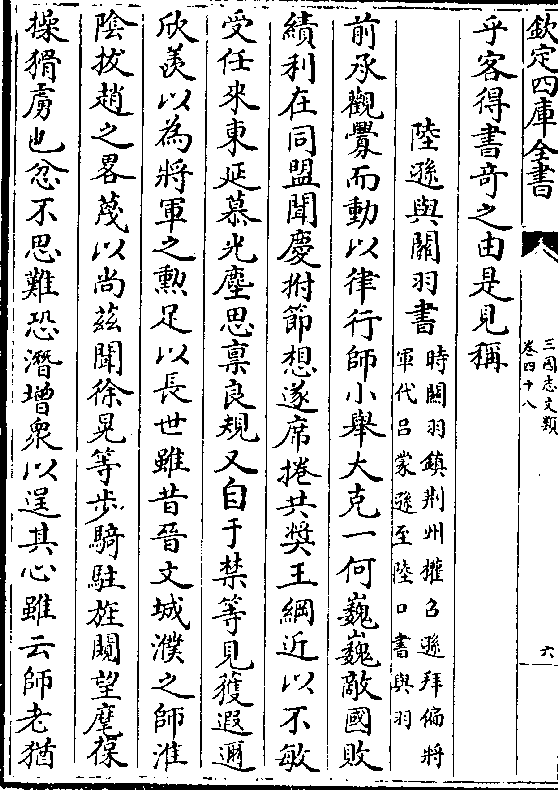 欽定四庫全書
三國志文類
卷四十八
六
乎客得書奇之由是見稱
陸遜與關羽書
時關羽鎮荆州權召遜拜偏將
軍代吕蒙遜至陸口書與羽
前承觀釁而動以律行師小舉大克一何巍巍敵國敗
績利在同盟聞慶拊節想遂席捲共奬王綱近以不敏
受任來東延慕光塵思禀良規又曰于禁等見獲遐邇
欣羡以為將軍之勲足以長世雖昔晉文城濮之師淮
陰拔趙之畧蔑以尚兹聞徐晃等步騎駐旌闚望麾葆
操猾虜也忿不思難恐潛增衆以逞其心雖云師老猶